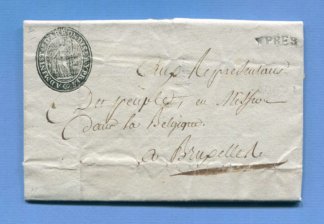 YPRES
Aux Représentans
Du peuple, en Mission
dans la Belgique.
à Bruxelles